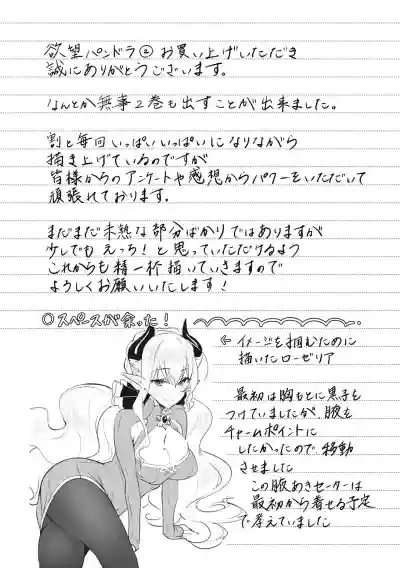 欲望パンドラ②お買い上げいただき
誠にありがとうございます。
なんとか無事2巻も出すことが出来ました。
割と毎回いっぱいいっぱいになりながら
描き上げているのですが
皆様からのアンケートや感想からパワーをいただいて
頑張れております。
まだまだ未熟な部分ばかりではありますが
少しでもえっち!と思っていただけるよう
これからも精一杯描いていきますので
よろしくお願いいたします!
◎スペースが余った!
← イメージを掴むために
描いたローゼリア
最初は胸もとに黒子を
つけていましたが、腋を
チャームポイントに
したかったので移動
させました
この腋あきセーターは
最初から着せる予定
で考えていました